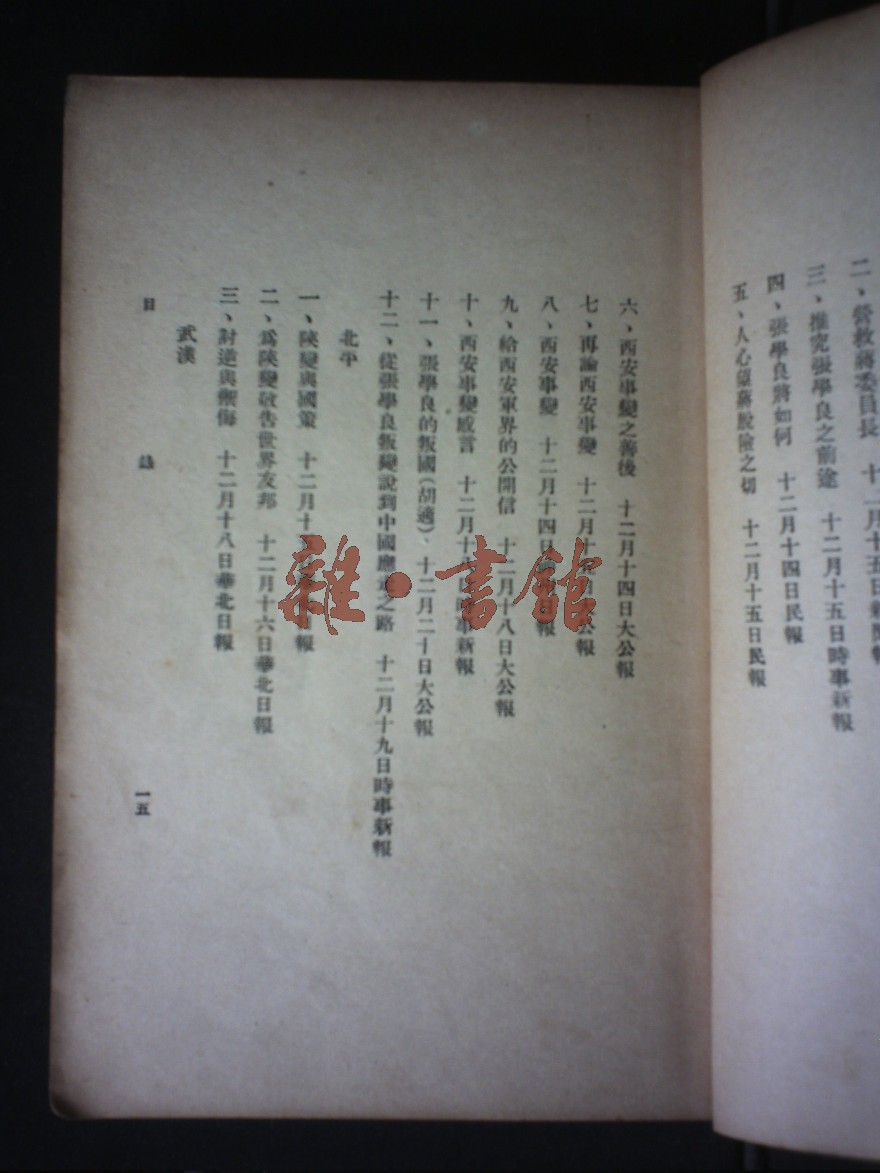 二、營救蔣委員長　十二月十五日新聞報
三、推究張學良之前途　十二月十五日時事新報
四、張學良將如何　十二月十四日民報
五、人心望蔣脫險之切　十二月十五日民報
六、西安事變之善後　十二月十四日大公報
七、再論西安事變　十二月十　日大公報
八、西安事變　十二月十四日　報
九、給西安軍界的公開信　十二月十八日大公報
十、西安事變感言　十二月十　日時事新報
十一、張學良的叛國（胡適）、十二月二十日大公報
十二、從張學良叛變說到中國應　之路　十二月十九日時事新報
北平
一、陝變與國策　十二月十　報
二、爲陝變敬告世界友邦　十二月十六日華北日報
三、討逆與禦侮　十二月十八日華北日報
武漢
目　錄
一五
雜·書館